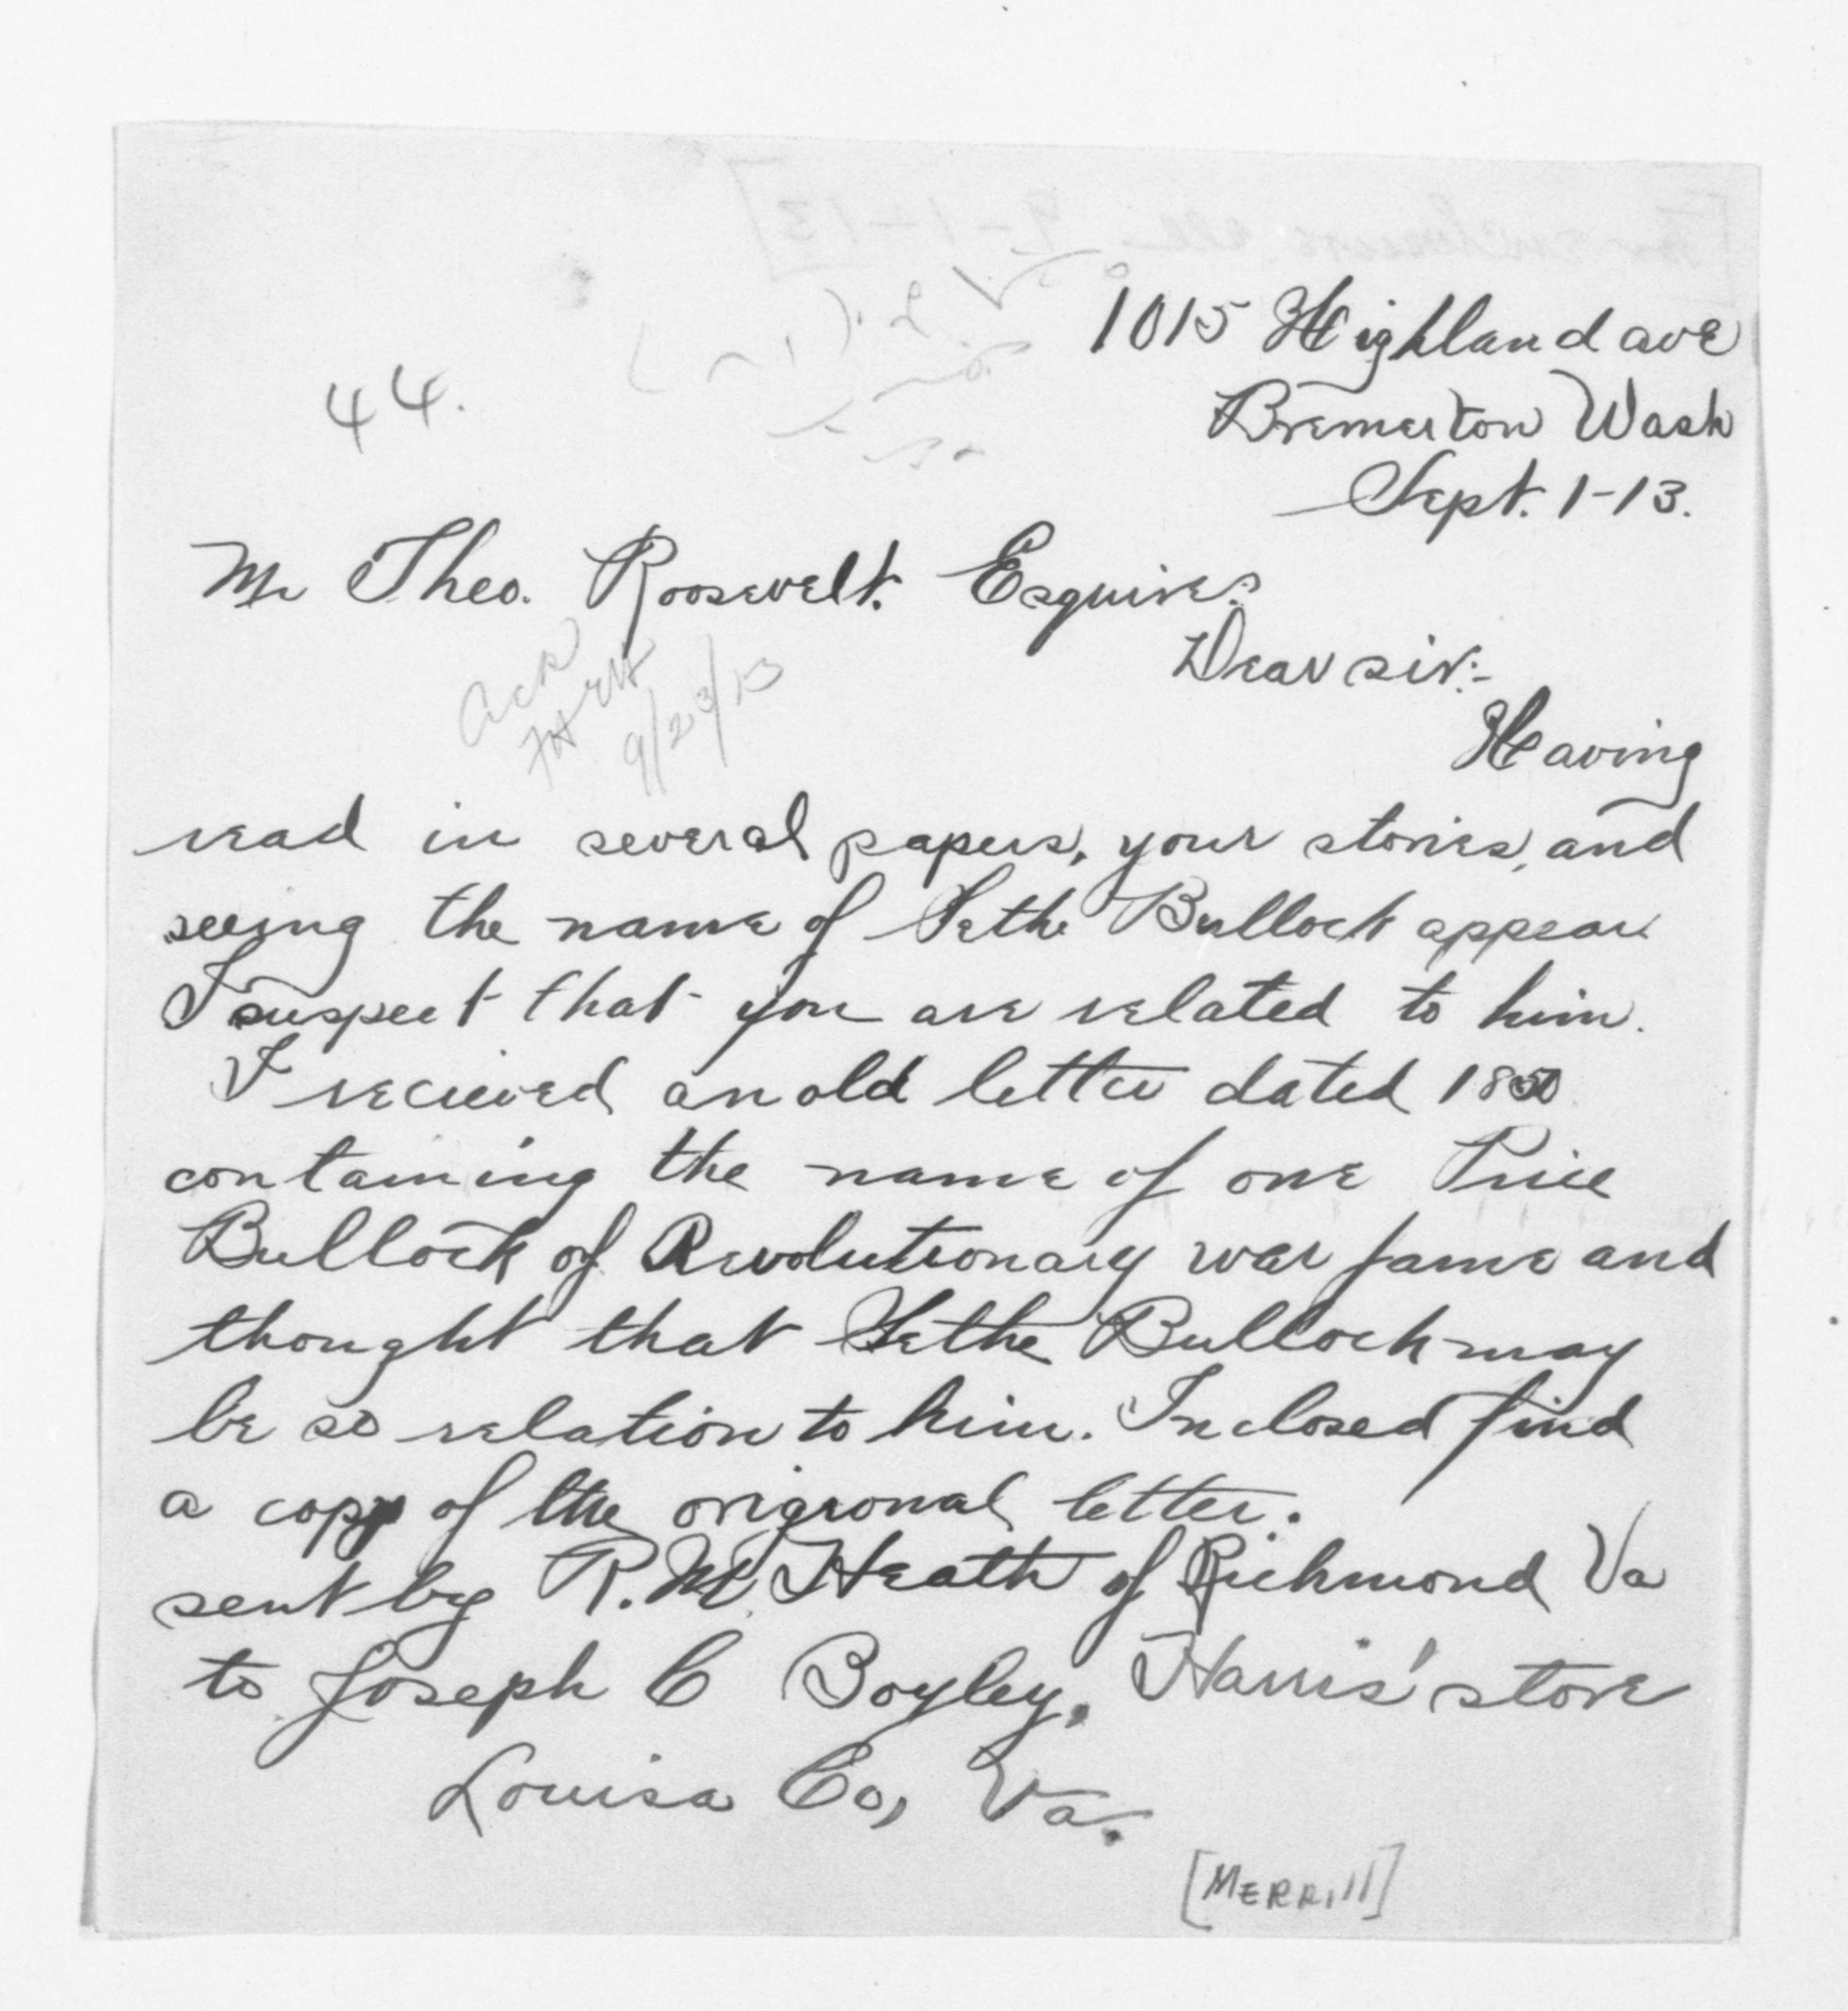 1015 Highland ave
44.
Bremerton Wash
Sept. 1-13.
Mr Theo. Roosevelt. Esquire.
Dear sir:-
Ack
9/23/13
Having
read in several papers, your stories, and
seeing the name of Sethe Bullock appear
I suspect that you are related to him.
I recieved an old letter dated 1850
containing the name of one Price
Bullock of Revolutionary war fame and
thought that Sethe Bullock may
be so relation to him. Inclosed find
a copy of the origronal letter.
sent by R. M. Heath of Richmond Va
to Joseph C Boyley, Harris' store
Louisa Co, Va.
[MERRill]